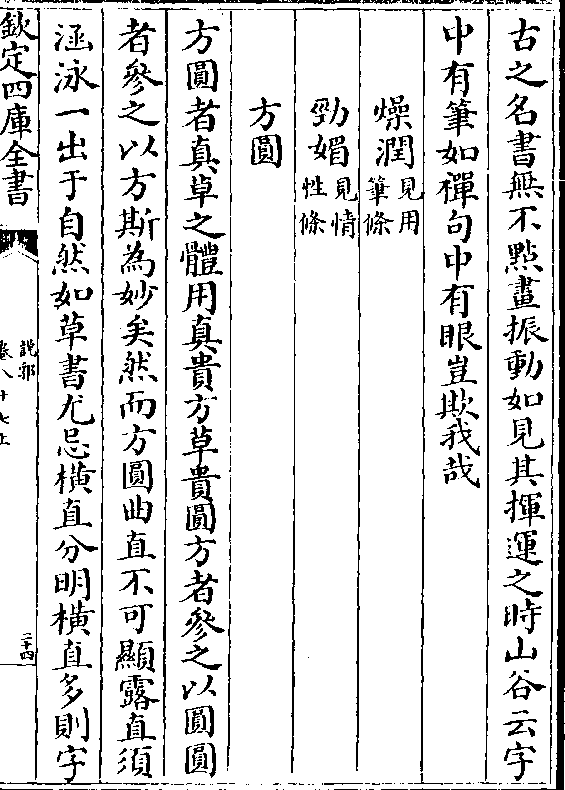 古之名書無不點畫振動如見其揮運之時山谷云字
中有筆如禪句中有眼豈欺我哉
燥潤見用筆條
勁媚見情性條
方圓
方圓者真草之體用真貴方草貴圓方者參之以圓圓
者參之以方斯為妙矣然而方圓曲直不可顯露直須
涵泳一出于自然如草書尤忌橫直分明橫直多則字
欽定四庫全書
說郛
卷八十七上
二十四